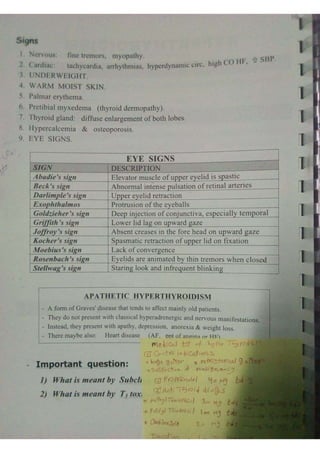 Signs
1. Nervous: fine tremors, myopathy.
2. Cardiac: tachycardia, arrhythmias, hyperdynamic circ, high CO HF, ⇧ SBP.
3. UNDERWEIGHT.
4. WARM MOIST SKIN.
5. Palmar erythema.
6. Pretibial myxedema (thyroid dermopathy).
7. Thyroid gland: diffuse enlargement of both lobes.
8. Hypercalcemia & osteoporosis.
9. EYE SIGNS.
EYE SIGNS
SIGN DESCRIPTION
Abadie's sign Elevator muscle of upper eyelid is spastic
Beck's sign Abnormal intense pulsation of retinal arteries
Darlimple's sign Upper eyelid retraction
Exophthalmos Protrusion of the eyeballs
Goldzieher's sign Deep injection of conjunctiva, especially temporal
Griffith's sign Lower lid lag on upward gaze
Joffroy's sign Absent creases in the fore head on upward gaze
Kocher's sign Spasmatic retraction of upper lid on fixation
Moebius's sign Lack of convergence
Rosenbach's sign Eyelids are animated by thin tremors when closed
Stellwag's sign Staring look and infrequent blinking
APATHETIC HYPERTHYROIDISM
- A form of Graves' disease that tends to affect mainly old patients.
- They do not present with classical hyperadrenergic and nervous manifestations.
- Instead, they present with apathy, depression, anorexia & weight loss.
- There maybe also: Heart disease (AF, not of angina or HF)
- Important question:
1) What is meant by Subcl
2) What is meant by T3 tox